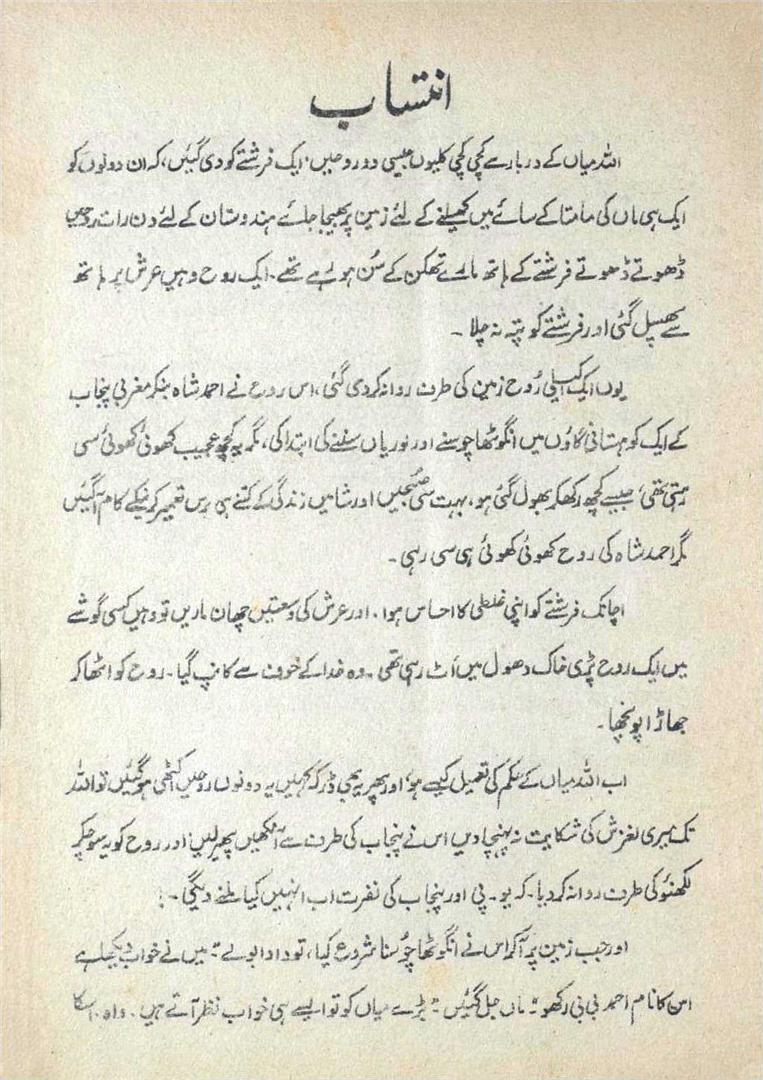 انتساب
اللہ میاں کے دربار سے کچی کچی کلیوں جیسی دو روحیں، ایک فرشتے کو دی گئیں، کہ ان دونوں کو
ایک ہی ماں کی مامتا کے سائے میں کھیلنے کے لئے زمین پر بھیجا جائے ہندوستان کے لئے دن رات روحیں
ڈھوتے ڈھوتے فرشتے کے ہاتھ مارے تھکن کے سُن ہو رہے تھے۔ ایک روح وہیں عرش پر ہاتھ
سے پھسل گئی اور فرشتے کو پتہ نہ چلا ۔
یوں ایک اکیلی رُوح زمین کی طرف روانہ کر دی گئی، اس روح نے احمد شاہ بنکر مغربی پنجاب
کے ایک کوہستانی گاؤں میں انگوٹھا چوسنے اور لوریاں سننے کی ابتدا کی، مگر یہ کچھ عجیب کھوئی کھوئی سی
رہتی تھی، جیسے کچھ رکھکر بھول گئی ہو، بہت سی صُبحیں اور شامیں زندگی کے کتنے ہی برس تعمیر کرنیکے کام آ گئیں
مگر احمد شاہ کی روح کھوئی کھوئی ہی سی رہی ۔
اچانک فرشتے کو اپنی غلطی کا احساس ہوا ۔ اور عرش کی وسعتیں چھان ماریں تو وہیں کسی گوشے
میں ایک روح پڑی خاک دھول میں اٹ رہی تھی ۔ وہ خدا کے خوف سے کانپ گیا ۔ روح کو اٹھا کر
جھاڑا پونچھا ۔
اب اللہ میاں کے حکم کی تعمیل کیسے ہو، اور پھر یہ بھی ڈر کہ کہیں یہ دونوں روحیں اکٹھی ہو گئیں تو اللہ
تک میری لغزش کی شکایت نہ پہنچا دیں اس نے پنجاب کی طرف سے آنکھیں پھیر لیں اور روح کو یہ سوچکر
لکھنؤ کی طرف روانہ کر دیا ۔ کہ یو ۔ پی اور پنجاب کی نفرت اب انہیں کیا ملنے دیگی ۔!
اور جب زمین پر آ کر اس نے انگوٹھا چُوسنا شروع کیا، تو دادا بولے "میں نے خواب دیکھا ہے
اس کا نام احمد بی بی رکھو" ماں جل گئیں "بڑے میاں کو تو ایسے ہی خواب نظر آتے ہیں ۔ واہ ۔ اسکا